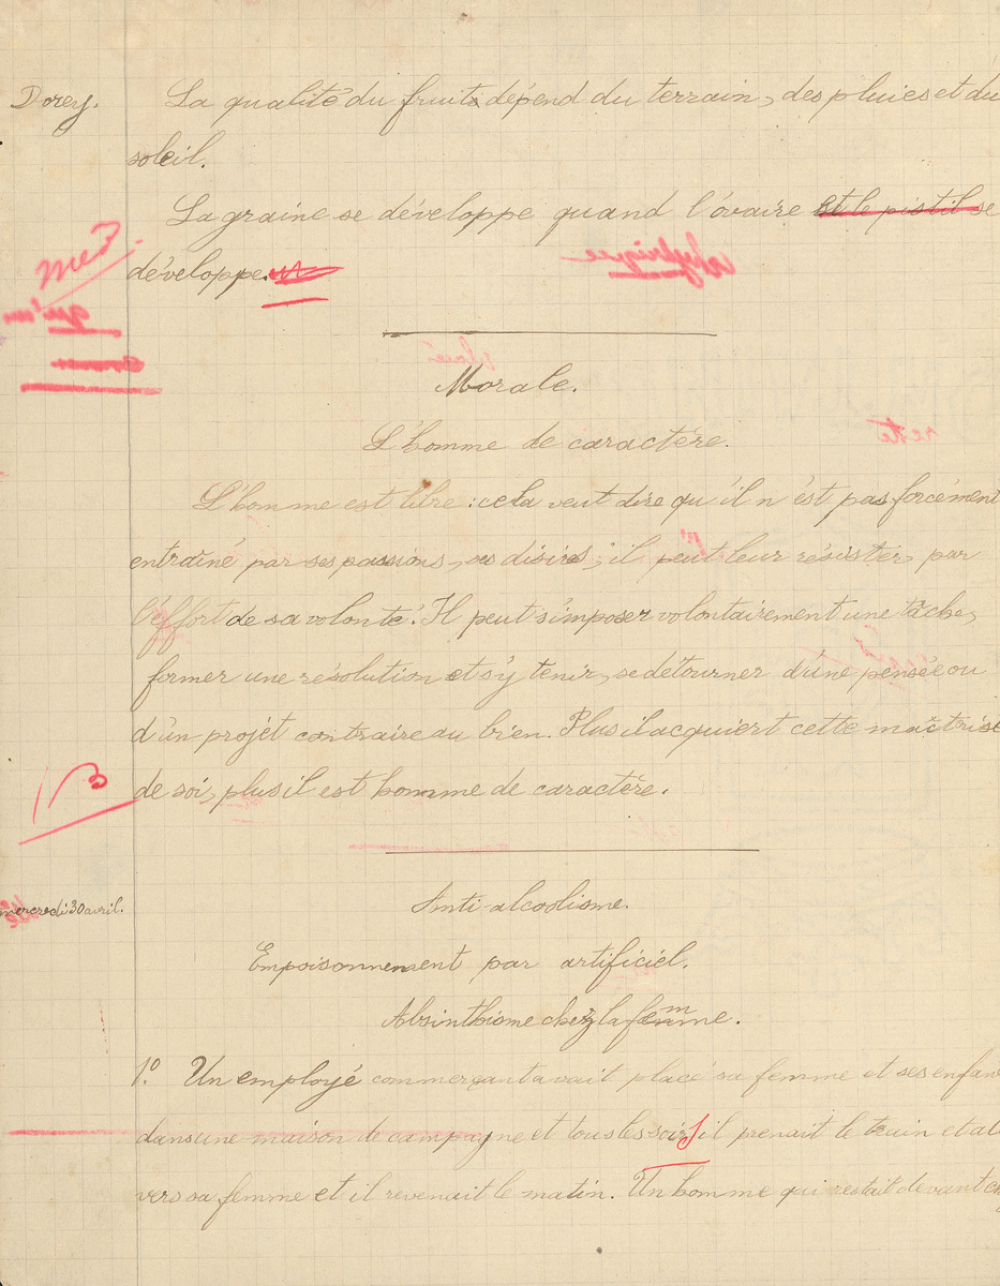 Dorey.
La qualité du fruit dépend du terrain, des pluies et du
soleil.
La graine se développe quand l'ovaire et le pistil se
développe.
Morale.
L'homme de caractère.
L'homme est libre : cela veut dire qu'il n'est pas forcément
entraîné par ses passions, ses désirs ; il peut leur résister, par
l'effort de sa volonté. Il peut s'imposer volontairement une tâche,
former une résolution et s'y tenir, se détourner d'une pensée ou
d'un projet contraire au bien. Plus il acquiert cette maîtrise
de soi, plus il est homme de caractère.
mercredi 30 avril.
Anti-alcoolisme.
Empoisonnement par artificiel.
Absinthisme chez la femme.
1º. Un employé commerçant avait placé sa femme et ses enfan
dans une maison de campagne et tous les soirs il prenait le train et al
vers sa femme et il revenait le matin. Un homme qui restait devant